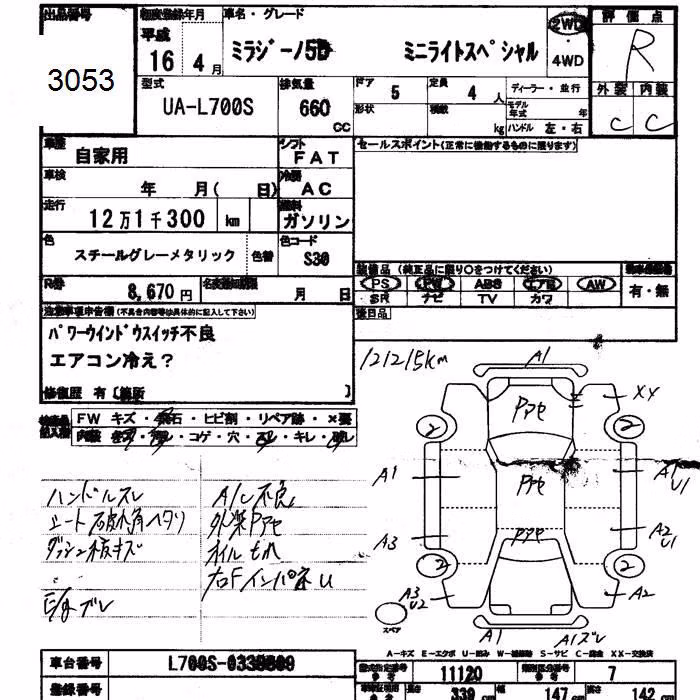 出品番号
3053
初度登録年月
平成
16年 4月
車名・グレード
ミラジーノ5D ミニライトスペシャル
2WD
・
4WD
評価点
R
外装 内装
C C
型式
UA-L700S
排気量
660
CC
ドア
5
定員
4人
ディーラー・並行
形状
積数
kg
モデル
年式 年
ハンドル 左・右
車歴
自家用
シフト
FAT
車検
年 月( 日)
冷房
AC
走行
12万1千300 km
燃料
ガソリン
色
スチールグレーメタリック
色替
色コード
S30
R券
8,670円
名変期限
月 日
セールスポイント(正常に機能するものに限ります)
装備品 (純正品に限り〇をつけてください)
PS PW ABS エアB AW
SR ナビ TV カワ
有・無
後日品
注意事項申告欄(不具合内容等は具体的に記入して下さい)
パワーウインドウスイッチ不良
エアコン冷え?
修復歴 有〔箇所 〕
検査員
記入欄
FW キズ・飛石・ヒビ割・リペア跡・×要
内装 キズ・汚レ・コゲ・穴・スレ・キレ・破レ
121215km
ハンドルスレ
シート破レ角ヘタリ
ダッシュ板キズ
E/gブレ
A/C不良
外装Pアセ
オイルもれ
右FインパネU
A1
XX
Pアセ
2 2
A1 Pアセ A1
U1
A3 A2
U1
Pアセ
2 2
A3
U2
A2
スペア
A1 A1ズレ
A-キズ E-エクボ U-凹み W-補修跡 S-サビ C-腐食 XX-交換済
車台番号
L700S-0339809
型式指定番号
参考
11120
類別区分番号
参考
7
登録番号
長さ
339 cm
幅
147 cm
高さ
142 cm